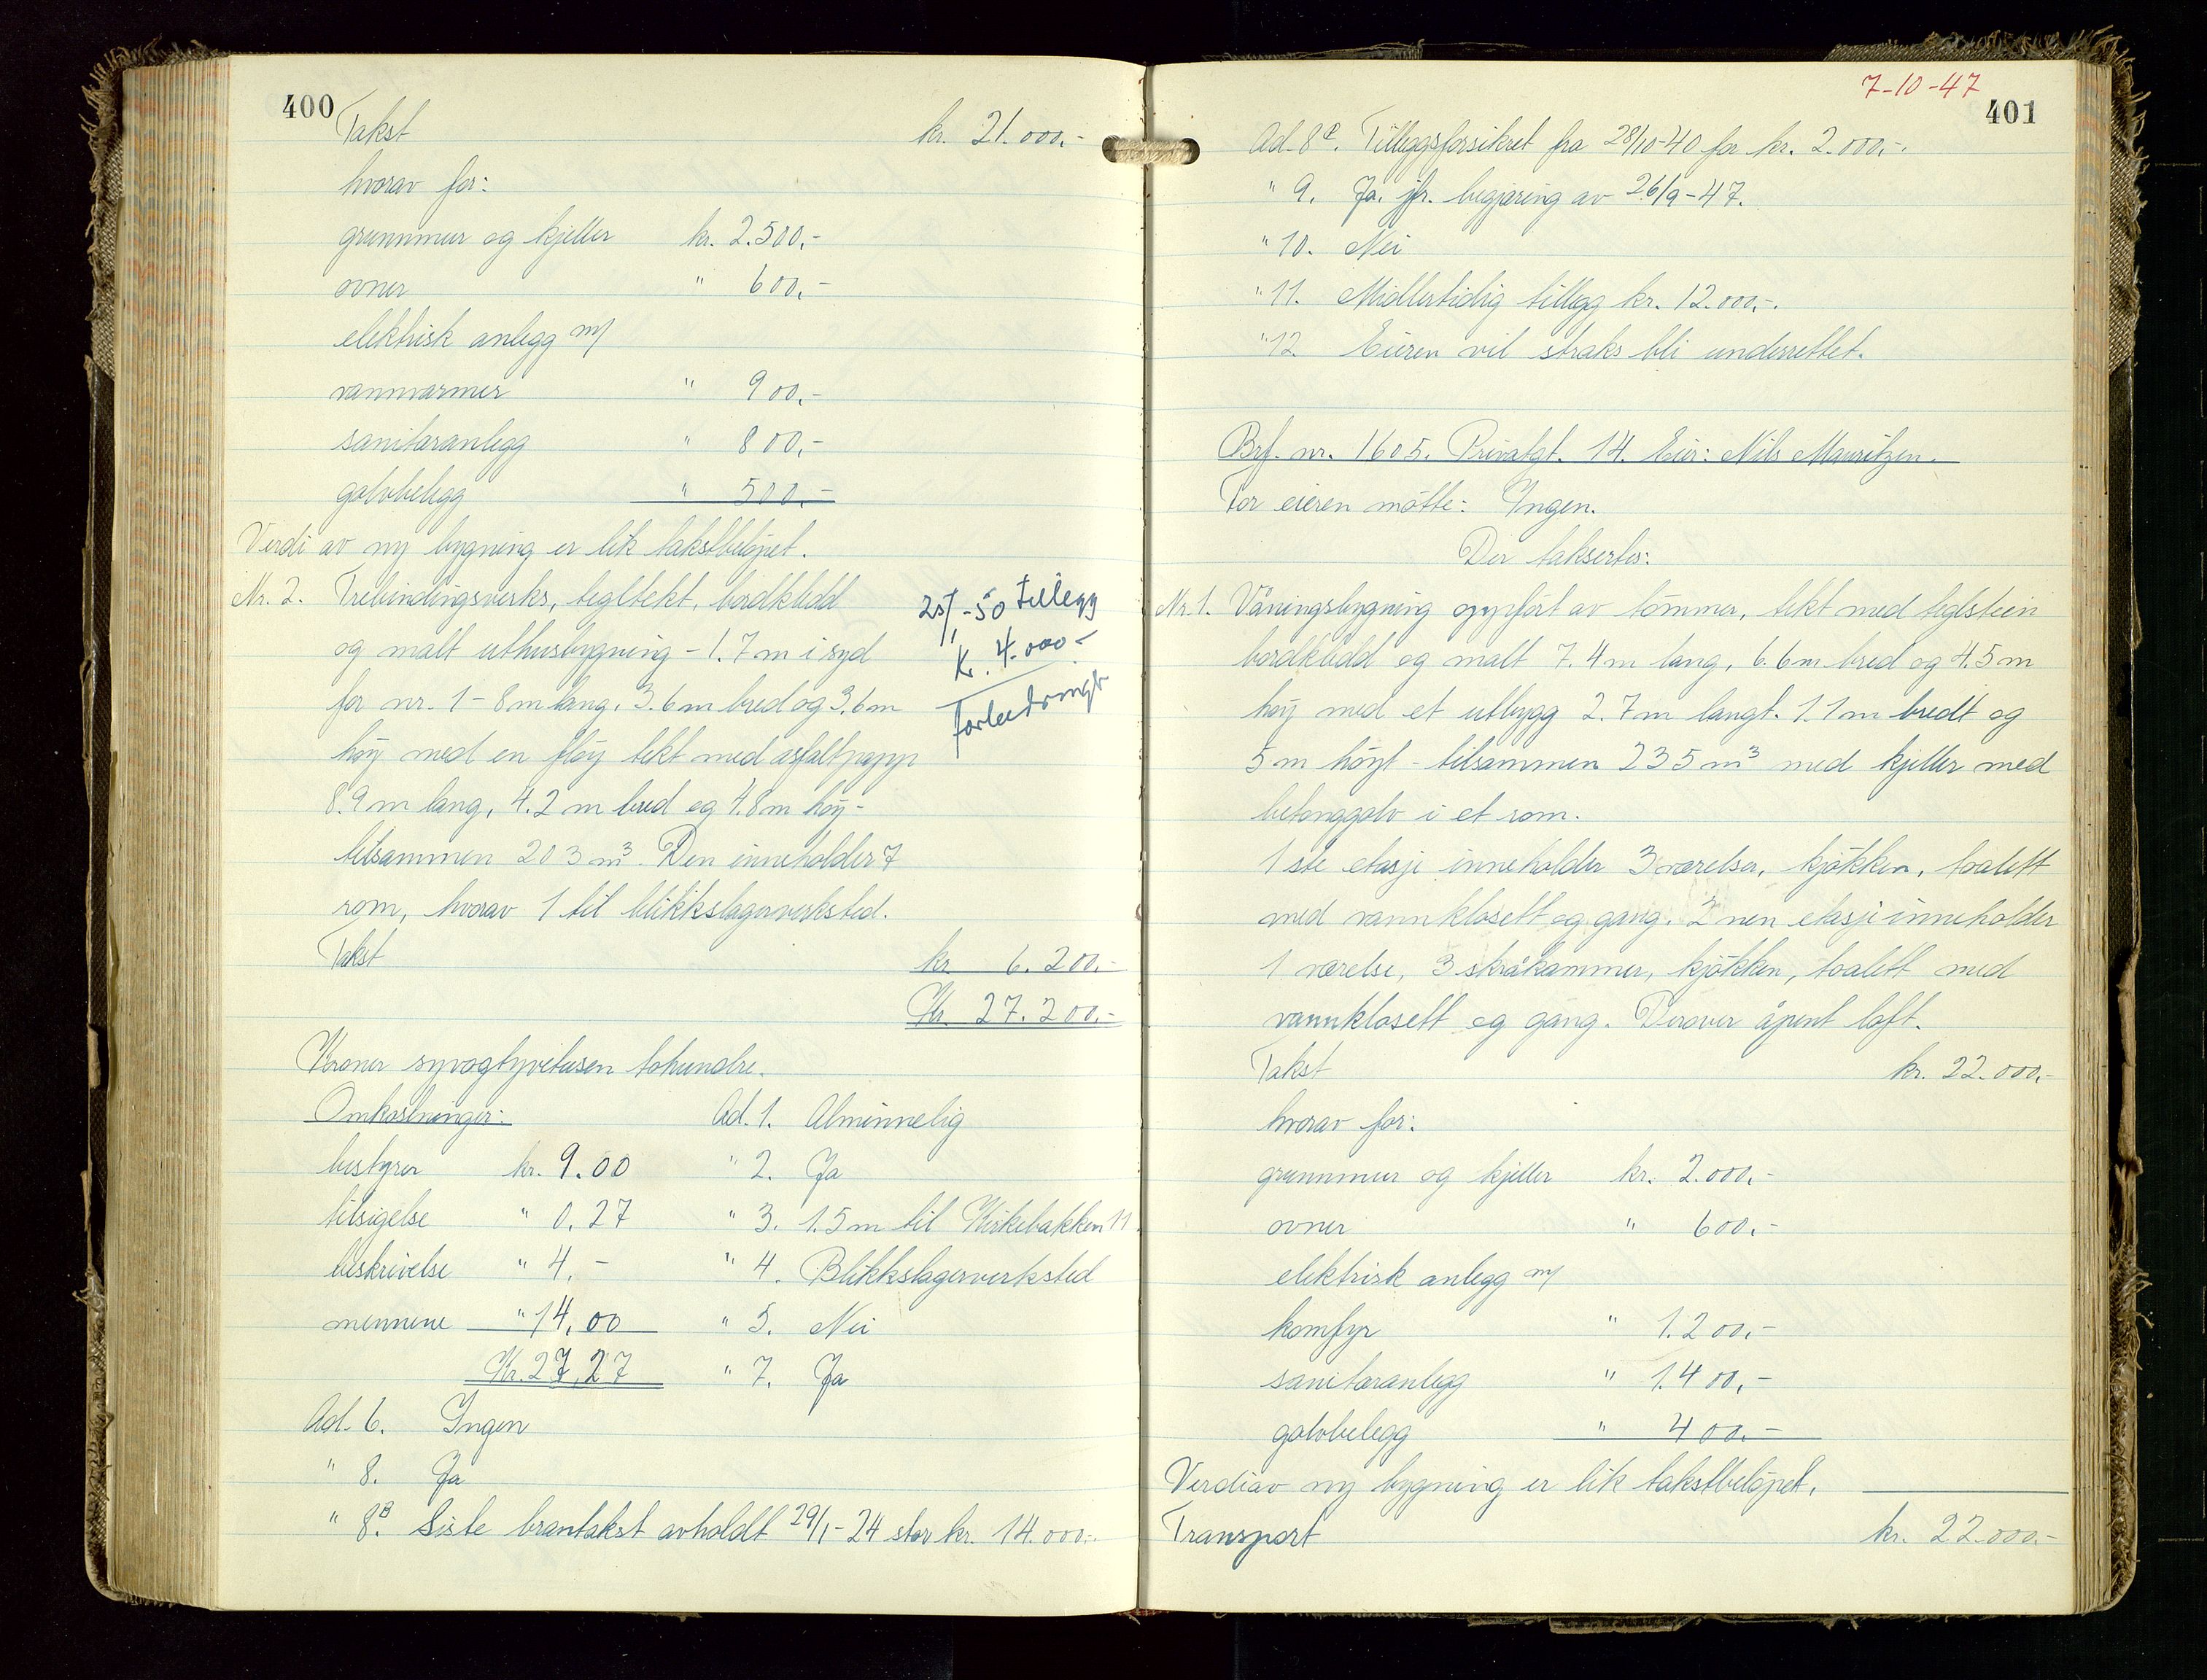 400
Takst kr. 21.000.-
hvorav for:
grunnmur og kjeller kr. 2.500,-
ovner " 600,-
elektrisk anlegg m/
vannvarmer " 900,-
sanitæranlegg " 800,-
golvbelegg " 500.-
Verdi av ny bygning er lik takstbeløpet.
Nr. 2. Trebindingsverks, tegltekt, bordkledd
og malt uthusbygning - 1.7 m i syd
for nr. 1 - 8 m lang, 3.6 m bred og 3.6 m
høy med en fløy tekt med asfaltpapp
8.9 m lang, 4.2 m bred og 4.8 m høy -
tilsammen 203 m³. Den inneholder 7
rom, hvorav 1 til blikkslagerverksted.
25/1-50 tillegg
Kr. 4.000-
Takst kr 6.200.-
Kr. 27.200.-
Kroner syvogtyvetusen tohundre.
Omkostninger: Ad. 1. Alminnelig
bestyrer kr. 9.00 " 2. Ja
tilsigelse " 0.27 " 3. 1.5 m til Kirkebakken 11.
beskrivelse " 4.- " 4. Blikkslagerverksted
mennene " 14,00 " 5. Nei
Kr. 27,27 " 7. Ja
Ad. 6. Ingen
" 8. Ja
" 8B. Siste branntakst avholdt 29/1-24 stor kr. 14.000.-
7-10-47
401
Ad. 8c. Tilleggsforsikret fra 28/10-40 for kr. 2.000.-.
" 9. Ja. jfr. begjæring av 26/9-47.
" 10. Nei
" 11. Midlertidig tillegg kr. 12.000,-.
" 12 Eieren vil straks bli underrettet.
Brf. nr. 1605. Privatgt. 14. Eier: Nils Mauritzen.
For eieren møtte: Ingen.
Der taksertes:
Nr. 1. Våningsbygning oppført av tømmer, tekt med teglstein
bordkledd og malt 7.4 m lang, 6.6 m bred og 4.5 m
høy med et utbygg 2.7 m langt. 1.1 m bredt og
5 m høyt - tilsammen 235 m³ med kjeller med
betonggolv i et rom.
1ste etasje inneholder 3 værelser, kjøkken, toalett
med vannklosett og gang. 2nen etasje inneholder
1 værelse, 3 skråkammer, kjøkken, toalett med
vannklosett og gang. Derover åpent loft.
Takst kr. 22.000.-
hvorav for:
grunnmur og kjeller kr. 2.000.-
ovner " 600.-
elektrisk anlegg m/
komfyr " 1.200.-
sanitæranlegg " 1.400,-
golvbelegg " 400.-
Verdi av ny bygning er lik takstbeløpet.
Transport kr. 22.000.-